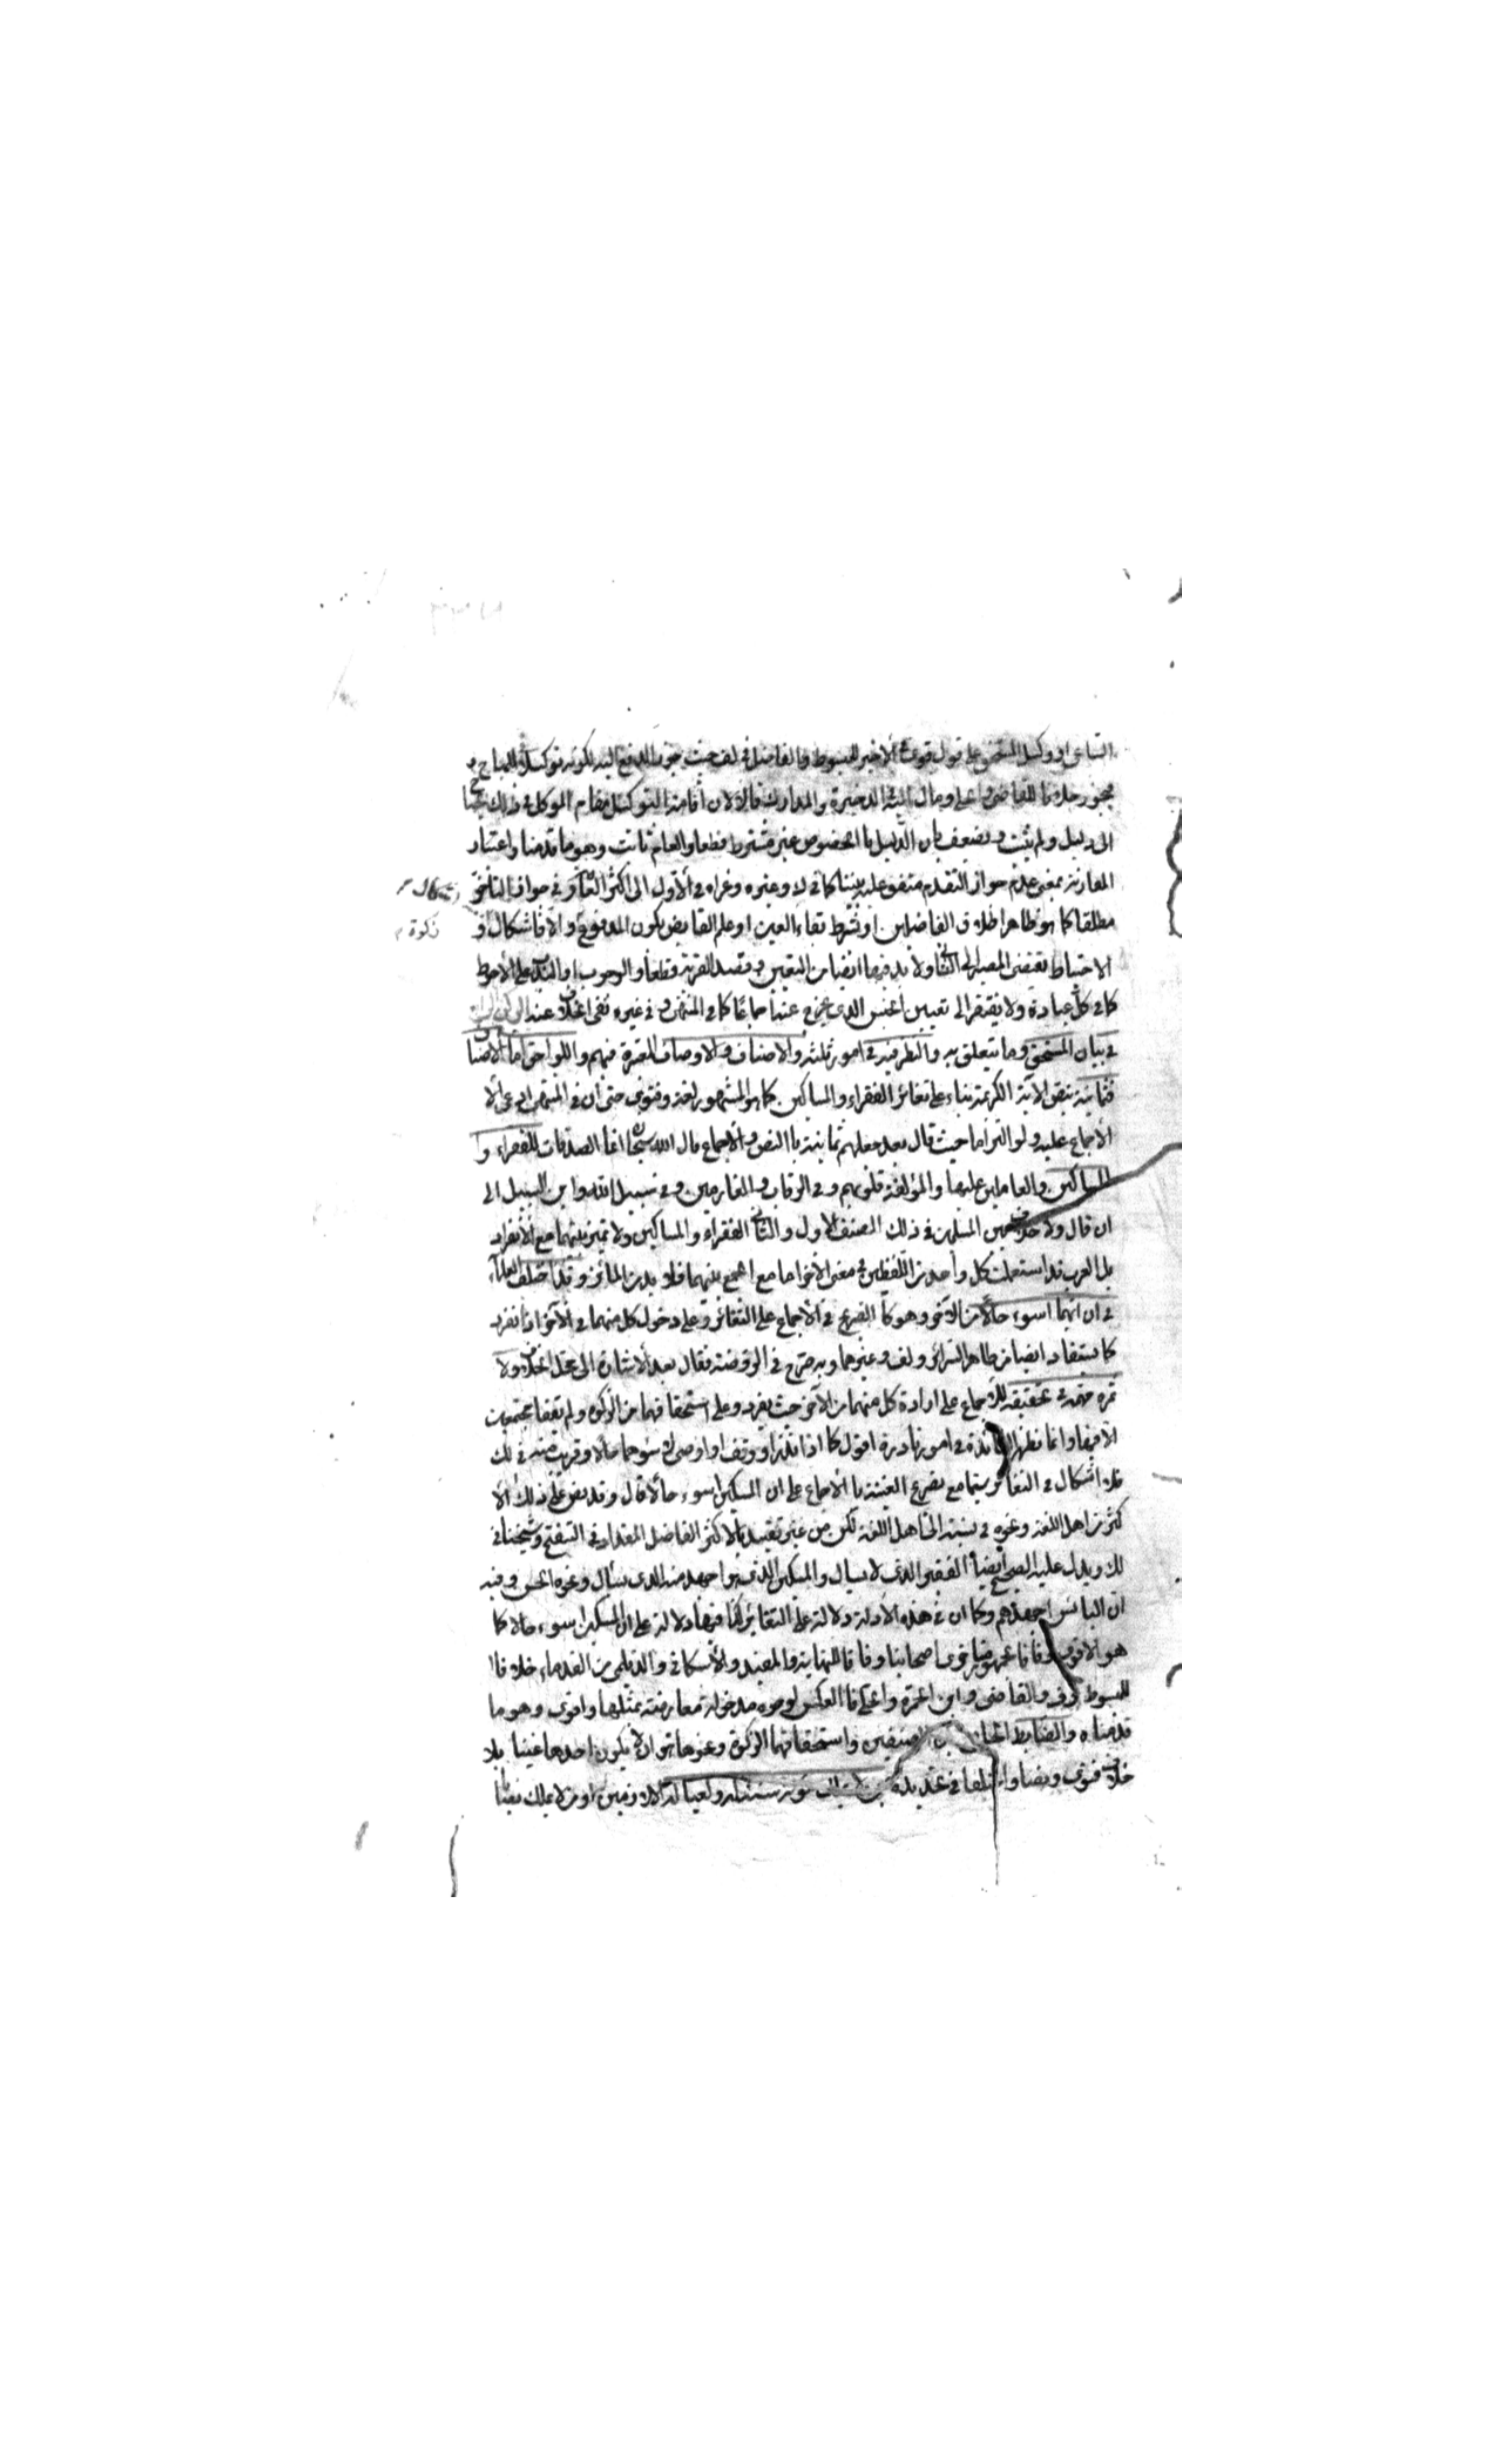 الساعى او وكيل المستحق على قول قوى فى الاخير للمبسوط والفاضل فى لف حيث جوزا الدفع اليه لكونه توكيلا فى المباح
فجوز خلافا للقاضى والحلى ومال اليه الذخيرة والمدارك قالا لان اقامة التوكيل مقام الموكل فى ذلك يحتاج
الى دليل ولم يثبت ويضعف بان الدليل بالخصوص غير مشترط قطعا والعام ثابت وهو ما قدمنا واعتبار
المقارنة بمعنى عدم جواز التقدم متفق عليه بيننا كما فى لك وغيره وعزاه فى الاول الى اكثر العلماء وفى جواز التاخر
مطلقا كما هو ظاهر اطلاق الفاضلين او بشرط بقاء العين او علم القابض بكون المدفوع والا فاشكال و
زكوة
الاحتياط يقتضى المصير الى الثانى ولا بد فيها ايضا من التعيين وقصد القربة قطعا والوجوب او الندب على الاحوط
كما فى كل عبادة ولا يفتقر الى تعيين الجنس الذى يخرج عنه اجماعا كما فى المنتهى وفى غيره نفى الخلاف عنه
فى بيان المستحق وما يتعلق به والنظر فيه فى امور ثلثه الاصناف والاوصاف المعتبرة فيهم واللواحق اما الاصناف
فثمانية بنص الاية الكريمة بناء على تغائر الفقراء والمساكين كما هو المشهور لغة وفتوى حتى ان فى المنتهى ادعى
الاجماع عليه ولو التزاما حيث قال بعد جعلهم ثمانية بالنص والاجماع قال الله سبحانه انما الصدقات للفقراء و
المساكين والعاملين عليها والمؤلفة قلوبهم وفى الرقاب والغارمين وفى سبيل الله وابن السبيل الى
ان قال ولا خلاف بين المسلمين فى ذلك الصنف الاول والثانى الفقراء والمساكين ولا تميز بينهما مع الانفراد
بل العرب قد استعملت كل واحد من اللفظين فى معنى الاخر اما مع الجمع بينهما فلا بد من المائز وقد اختلف العلماء
فى ان ايهما اسوء حالا من الاخر وهو كالصريح فى الاجماع على التغائر وعلى دخول كل منهما فى الآخر اذا انفرد
كما يستفاد ايضا من ظاهر السرائر ولف وغيرهما وبه صرح فى الروضة فقال بعد الاشارة الى محل الخلاف ولا
ثمرة مهمة فى تحقيقه للاجماع على ارادة كل منهما من الآخر حيث يفرد وعلى استحقاقهما من الزكوة ولم يقعا مجتمعين
الا فيها وانما تظهر الفائدة فى امور نادرة اقول كما اذا نذر او وقف او اوصى لاسوئهما حالا وقريب منه فى لك
فلا اشكال فى التغائر سيما مع تصريح الغنية بالاجماع على ان المسكين اسوء حالا قال وقد نص على ذلك الا
كثر من اهل اللغة ونحوه فى نسبته الى اهل اللغة لكن من غير تقييد بالاكثر الفاضل المقداد فى التنقيح وشيخنا فى
لك ويدل عليه الصحيح ايضا الفقير الذى لا يسال والمسكين الذى هو اجهد منه الذى يسأل ونحوه الحسن وفيه
ان البائس اجهدهم وكما ان فى هذه الادلة دلالة على التغائر كذا فيها دلالة على ان المسكين اسوء حالا كما
هو الاقوى وفاقا لجمهور متاخرى اصحابنا وفاقا للنهاية والمفيد والاسكافى والديلمى من القدماء خلافا
للمبسوط وف والقاضى وابن حمزة والحلى فالعكس لوجوه مدخولة معارضة بمثلها واقوى وهو ما
قدمناه والضابط الجامع بين الصنفين واستحقاقهما الزكوة ونحوها هو ان لا يكون احدهما غنيا بلا
خلاف فتوى ونصا واختلفا فى تحديده من يملك مؤنة سنة له ولعياله اللازمين او من لا يملك نصابا